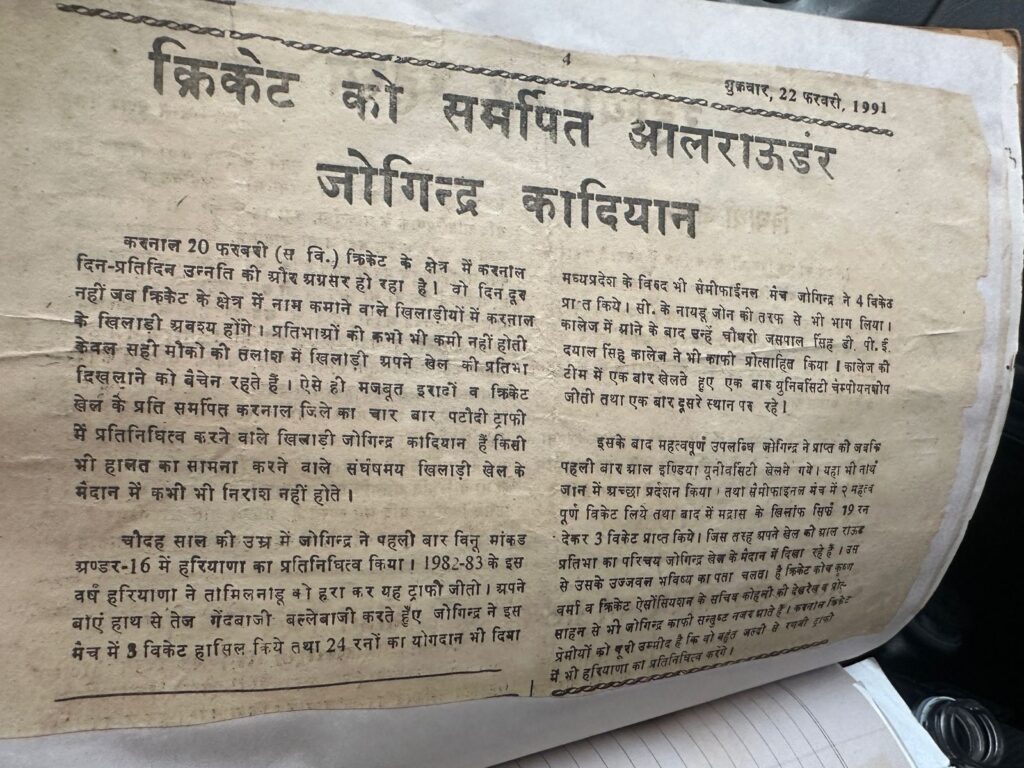 4
शुक्रवार, 22 फरवरी, 1991
क्रिकेट को समर्पित आलराऊडंर
जोगिन्द्र कादियान
करनाल 20 फरवरी (स वि.) क्रिकेट के क्षेत्र में करनाल
दिन-प्रतिदिन उन्नति की और अग्रसर हो रहा है। वो दिन दूर
नहीं जब क्रिकेट के क्षेत्र में नाम कमाने वाले खिलाड़ीयों में करनाल
के खिलाड़ी अवश्य होंगे। प्रतिभाओं की कभी भी कमी नहीं होती
केवल सही मौको की तलाश में खिलाड़ी अपने खेल की प्रतिभा
दिखलाने को बैचेन रहते हैं। ऐसे ही मजबूत इरादों व क्रिकेट
खेल के प्रति समर्पित करनाल जिले का चार बार पटौदी ट्राफी
में प्रतिनिधित्व करने वाले खिलाड़ी जोगिन्द्र कादियान हैं किसी
भी हालत का सामना करने वाले संघंषमय खिलाड़ी खेल के
मैदान में कभी भी निराश नहीं होते।
चौदह साल की उम्र में जोगिन्द्र ने पहली बार विनू मांकड
अण्डर-16 में हरियाणा का प्रतिनिधित्व किया। 1982-83 के इस
वर्ष हरियाणा ने तामिलनाडू को हरा कर यह ट्राफी जीती। अपने
बांए हाथ से तेज गेंदबाजी बल्लेबाजी करते हुए जोगिन्द्र ने इस
मैच में 3 विकेट हासिल किये तथा 24 रनों का योगदान भी दिया
मध्यप्रदेश के विरुद्ध भी सैमीफाईनल मैच जोगिन्द्र ने 4 विकेट
प्राप्त किये। सी. के नायडू जोन की तरफ से भी भाग लिया।
कालेज में आने के बाद उन्हें चौधरी जसपाल सिंह डी. पी. ई.
दयाल सिंह कालेज ने भी काफी प्रोत्साहित किया। कालेज की
टीम में एक बार खेलते हुए एक बार युनिवर्सिटी चैम्पीयनशीप
जीती तथा एक बार दूसरे स्थान पर रहे।
इसके बाद महत्वपूर्ण उपलब्धि जोगिन्द्र ने प्राप्त की जबकि
पहली बार आल इण्डिया यूनीवर्सिटी खेलने गये। यहा भी नार्थ
जान में अच्छा प्रर्दशन किया। तथा सैमीफाइनल मैच में २ महत्व
पूर्ण विकेट लिये तथा बाद में मद्रास के खिलाफ सिर्फ 19 रन
देकर 3 विकेट प्राप्त किये। जिस तरह अपने खेल की आल राऊंड
प्रतिभा का परिचय जोगिन्द्र खेल के मैदान में दिखा रहे हैं। उस
से उसके उज्जवल भविष्य का पता चलता है क्रिकेट कोच कृष्ण
वर्मा व क्रिकेट ऐसोंसियशन के सचिव कोहली की देखरेख व प्रोत-
साहन से भी जोगिन्द्र काफी सन्तुष्ट नजर आते हैं। करनाल क्रिकेट
प्रेमीयों को पूरी उम्मीद है कि वो बहुत जल्दी से रणजी ट्राफी
में भी हरियाणा का प्रतिनिधित्व करेंगे।